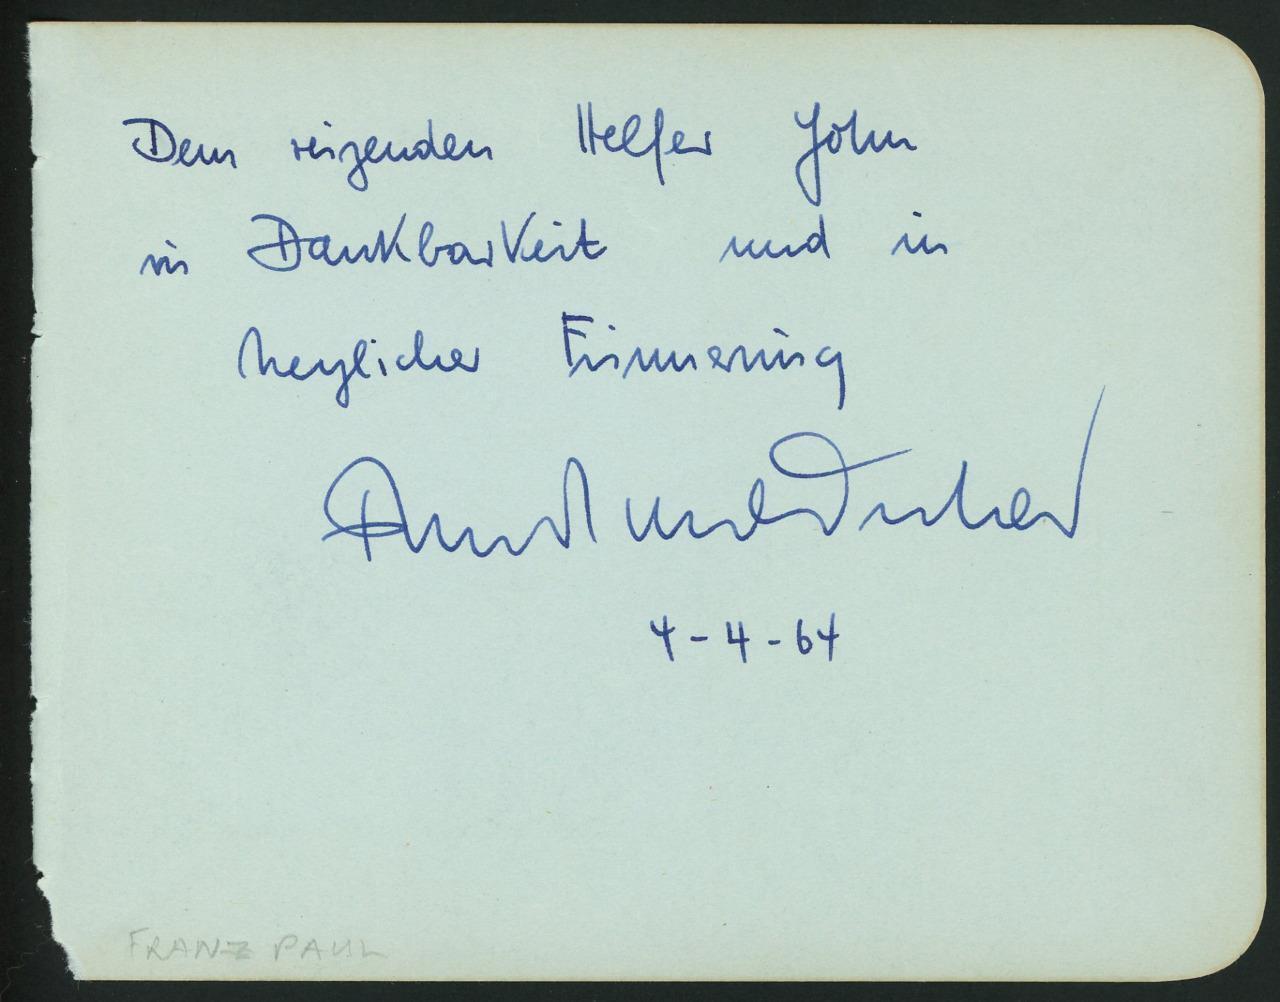 Dem reizenden Helfer John
in Dankbarkeit und in
herzlicher Erinnerung
4-4-64
FRANZ PAUL